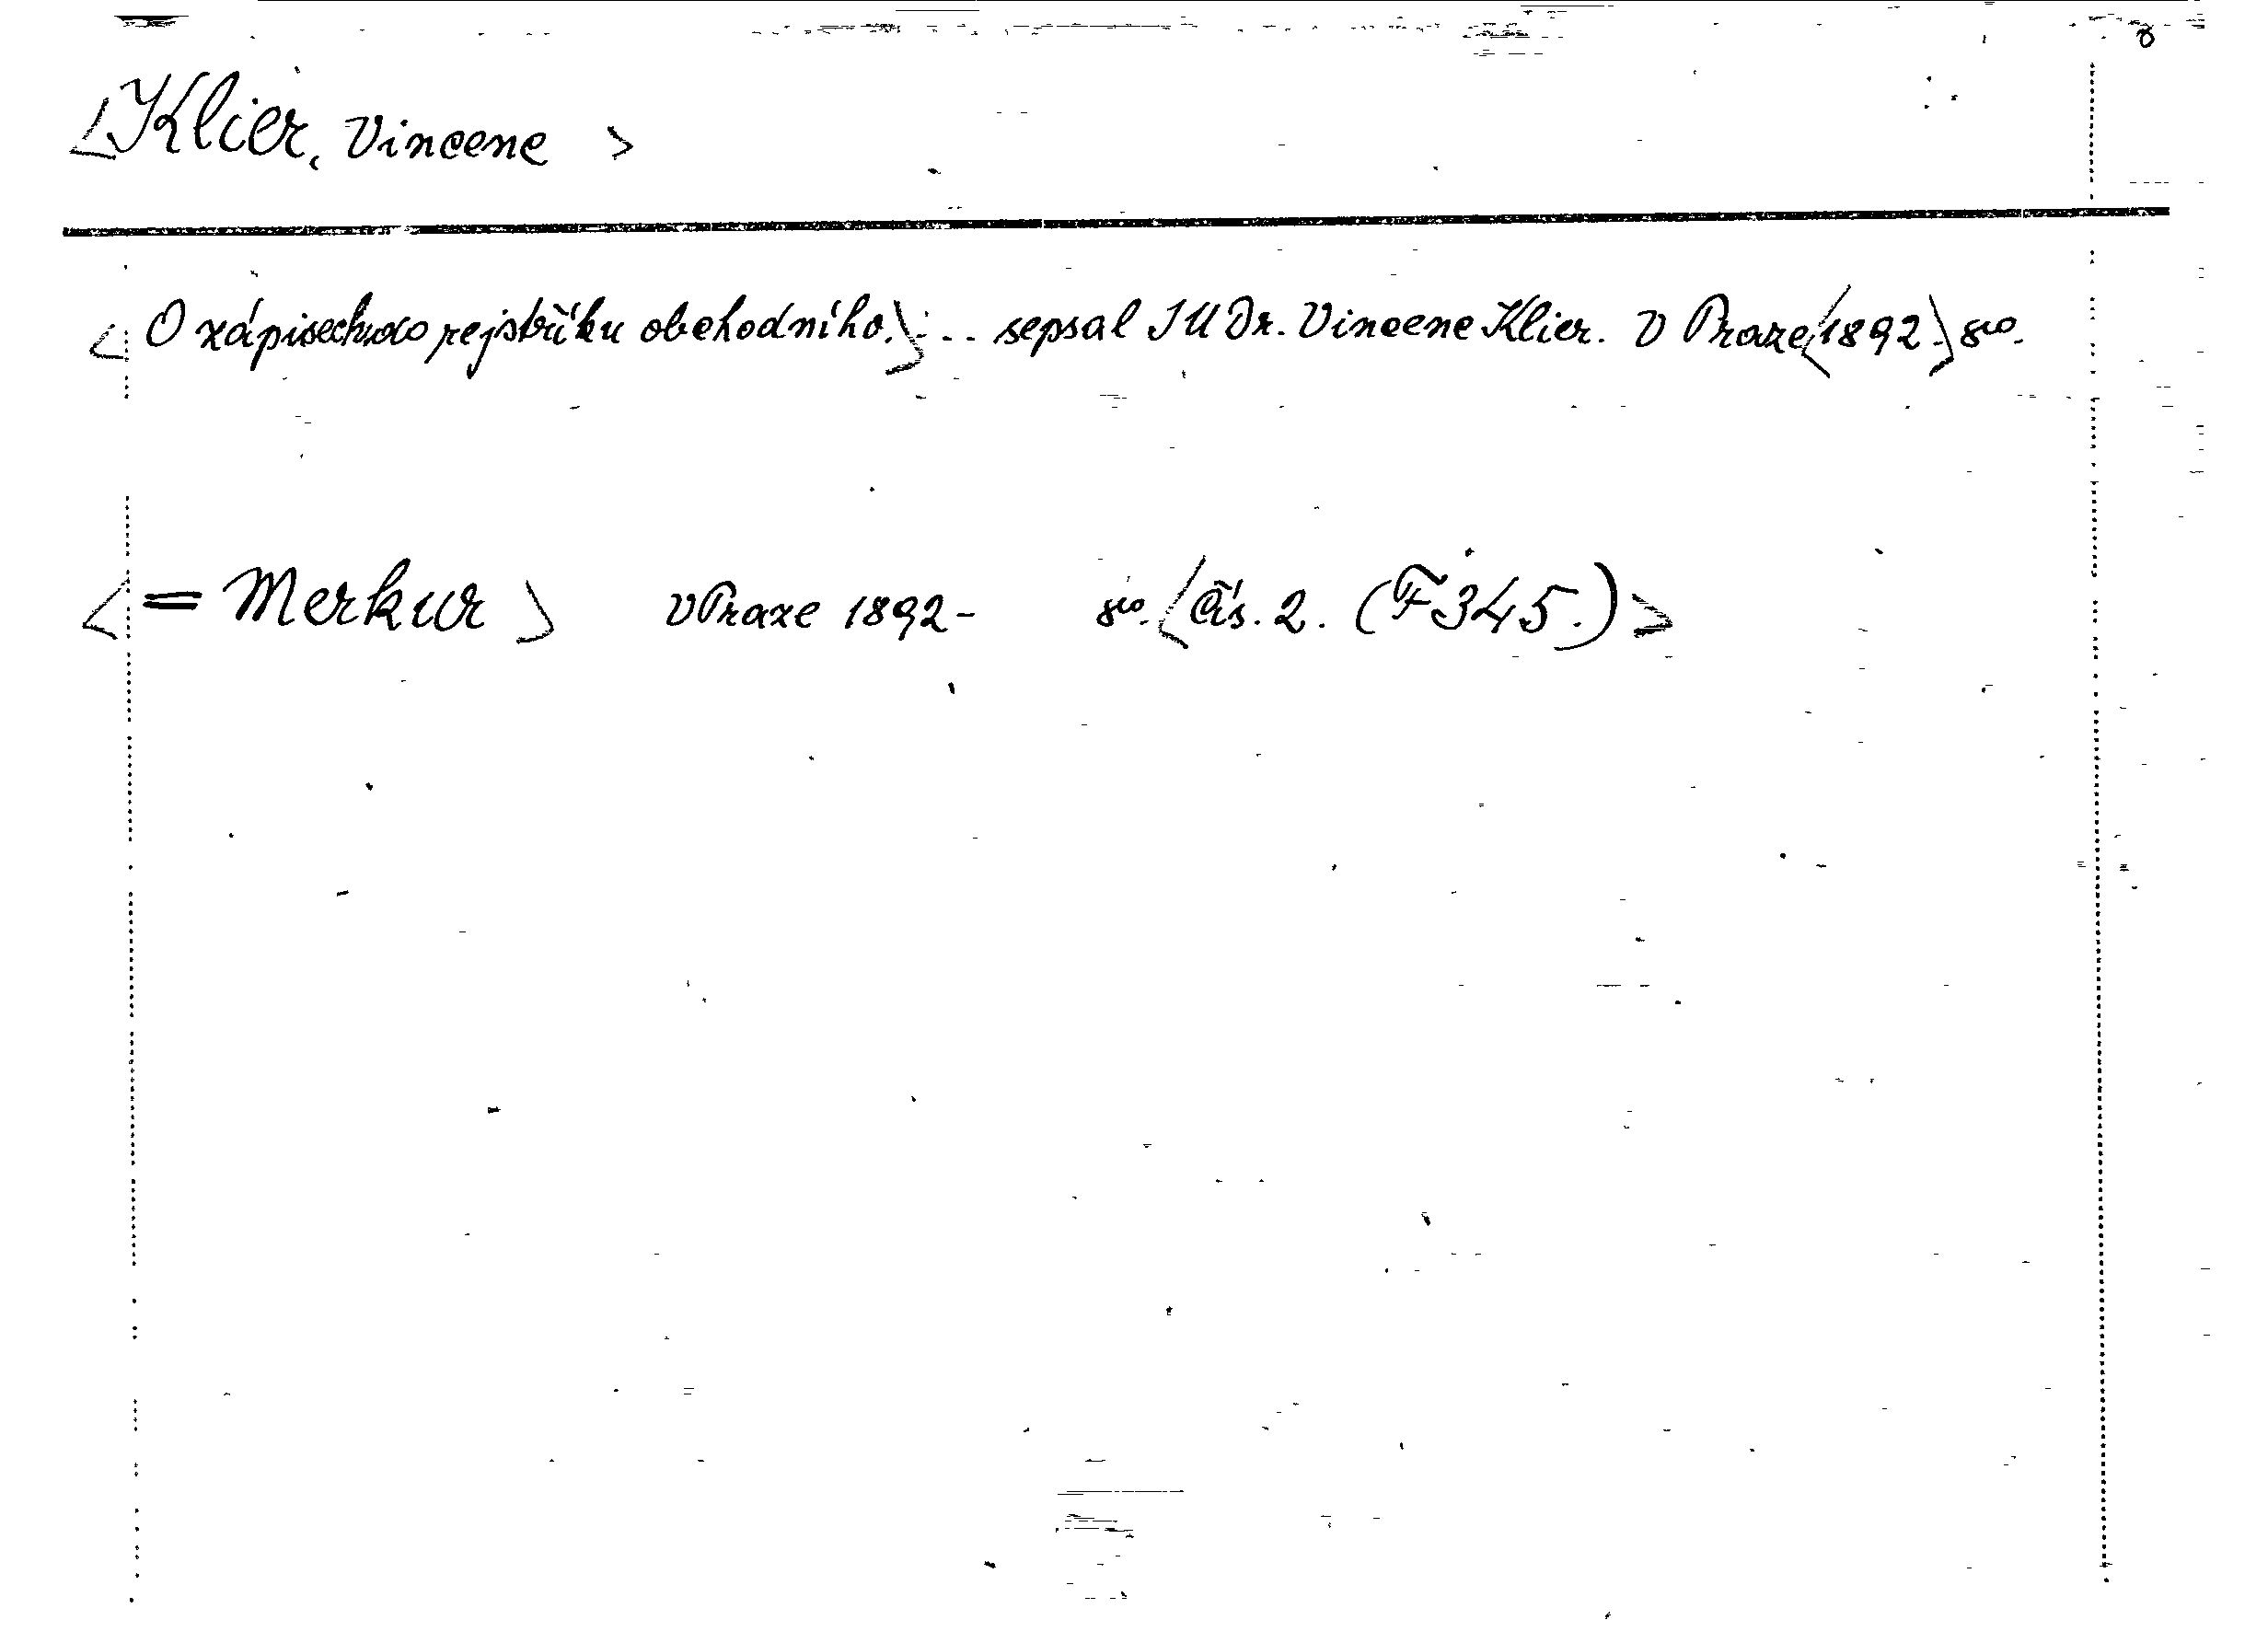 <Klier, Vincenc >
< O zápisech do rejstříku obchodního.> : .. sepsal JUDr. Vincenc Klier. V Praze <1892.> 8°.
< = Merkur > V Praze 1892- 8°. <Čís. 2. (F 345.)>